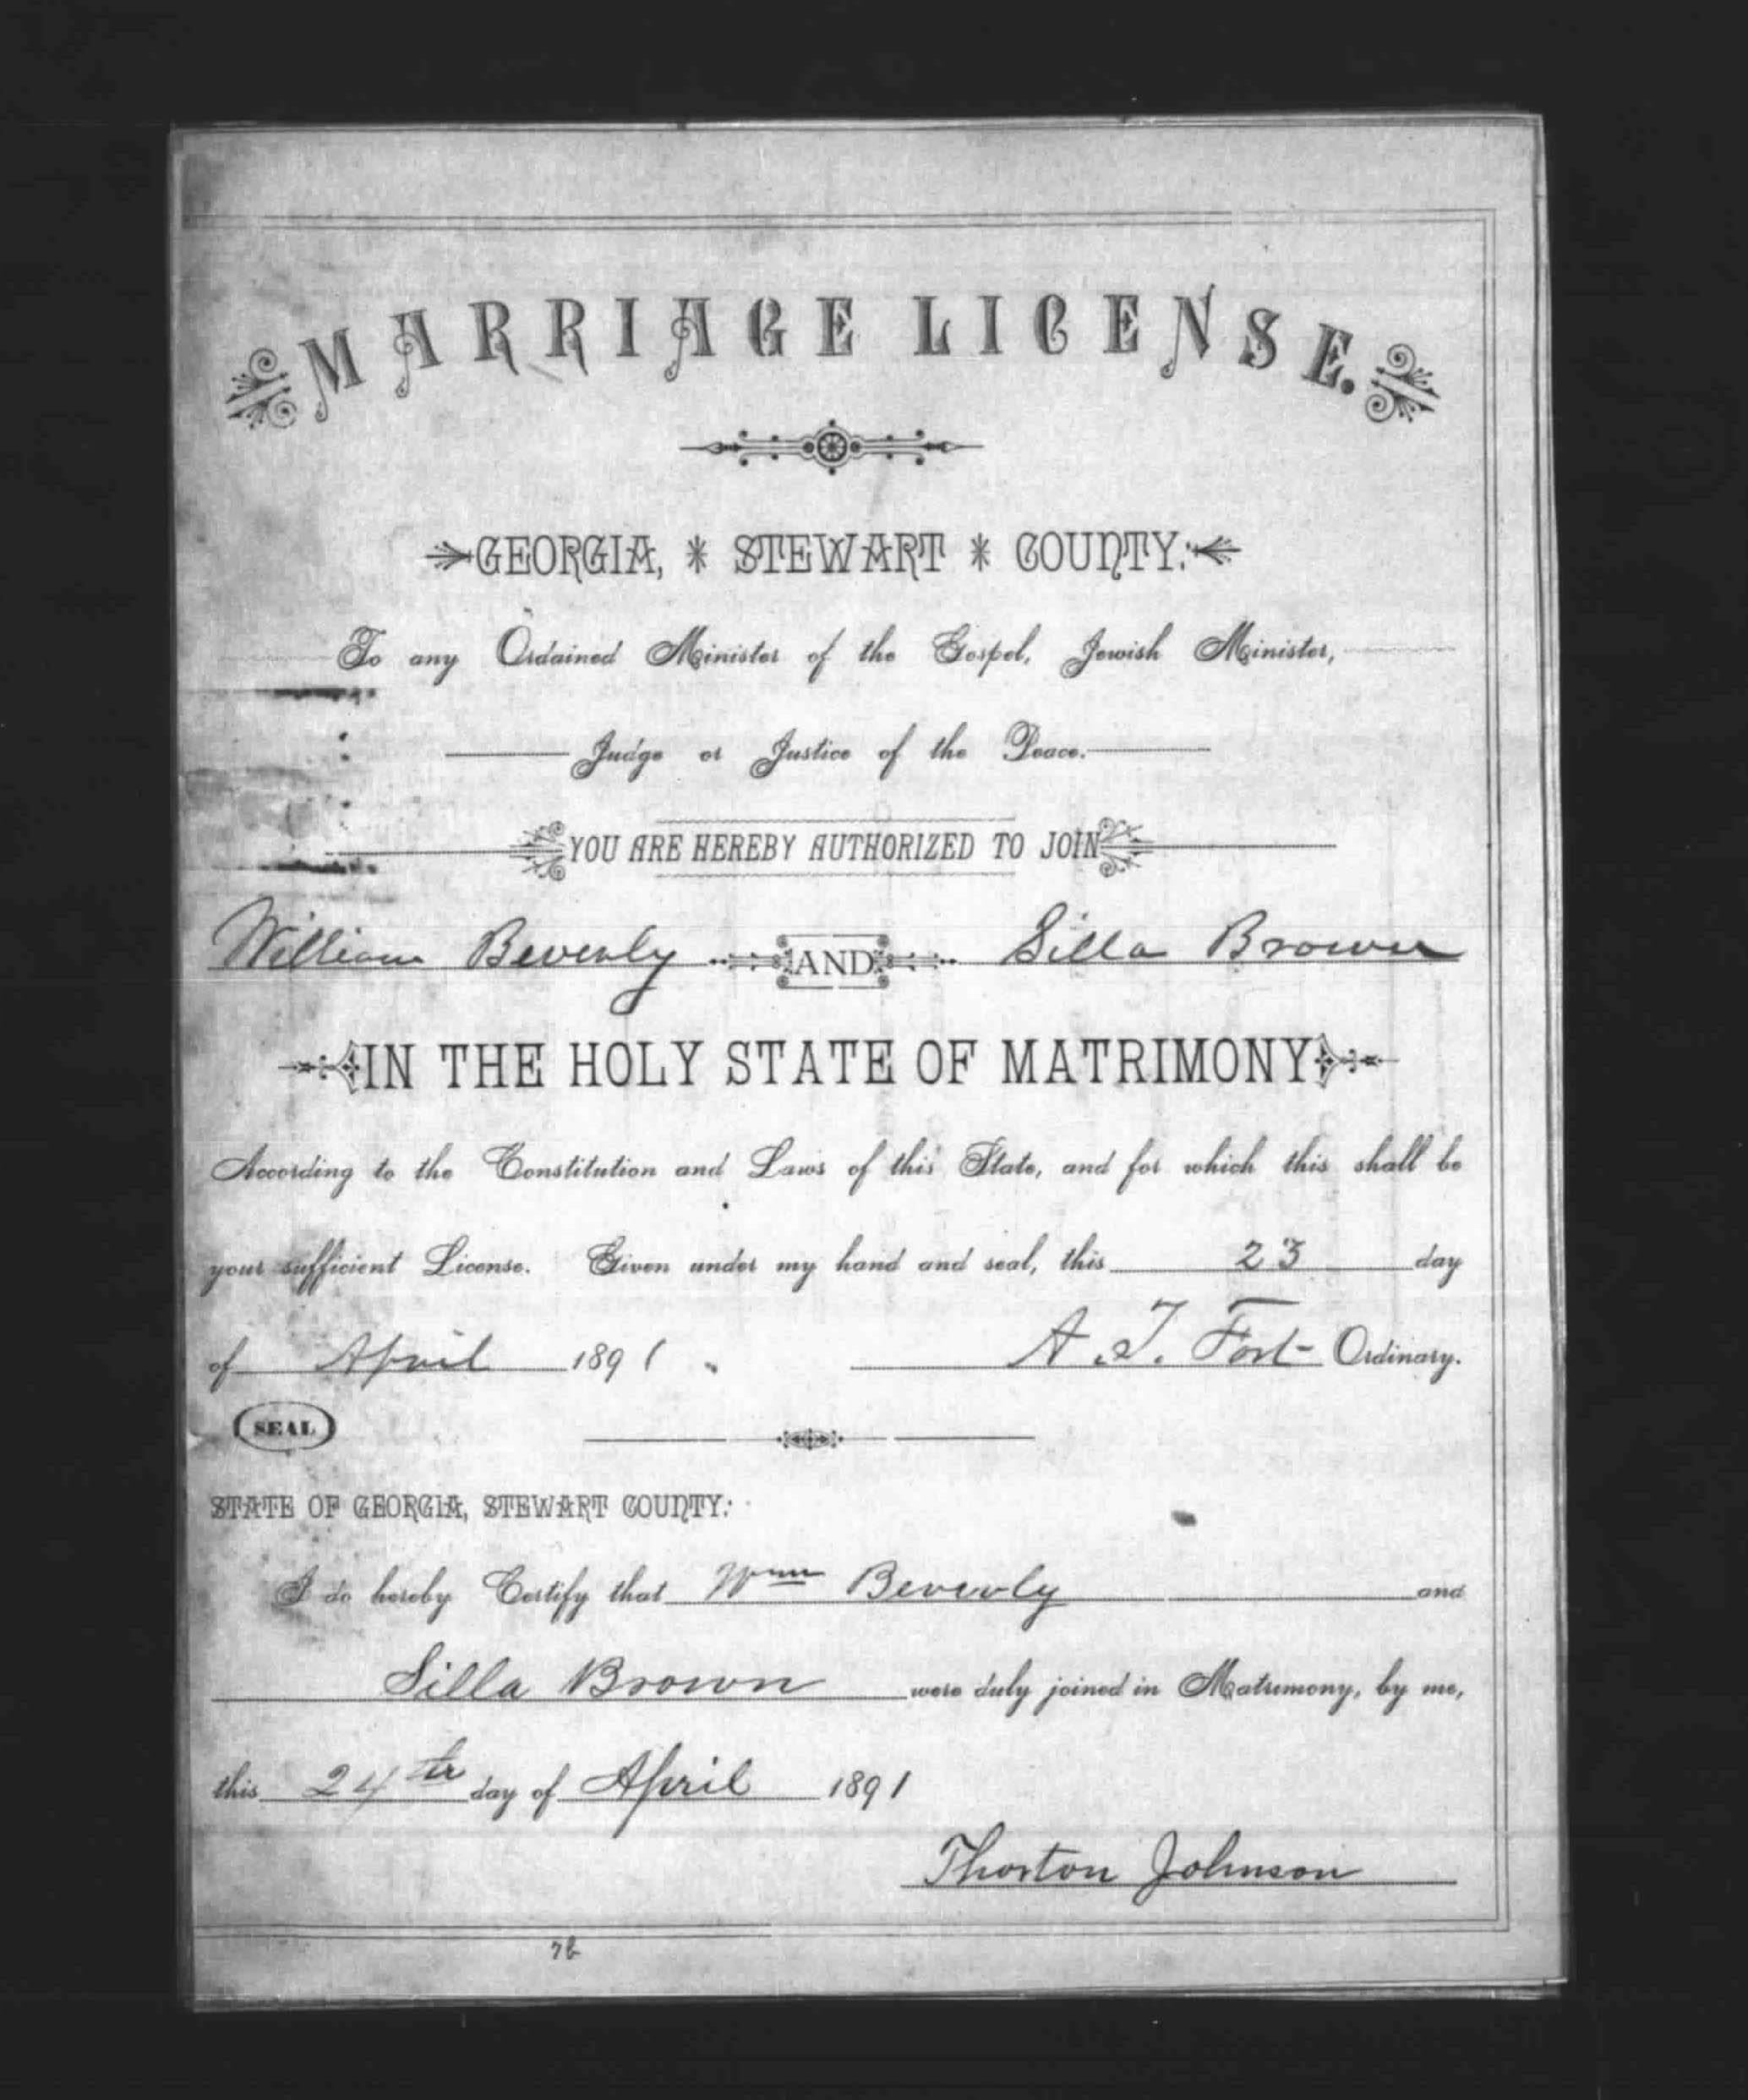 MARRIAGE LICENSE.
GEORGIA, * STEWART * COUNTY:
To any Ordained Minister of the Gospel, Jewish Minister,
Judge or Justice of the Peace.
YOU ARE HEREBY AUTHORIZED TO JOIN
William Beverly AND Silla Brown
IN THE HOLY STATE OF MATRIMONY
According to the Constitution and Laws of this State, and for which this shall be
your sufficient License. Given under my hand and seal, this 23 day
of April 1891. A. T. Fort Ordinary.
SEAL
STATE OF GEORGIA, STEWART COUNTY:
I do hereby Certify that Wm Beverly and
Silla Brown were duly joined in Matrimony, by me,
this 24th day of April 1891
Thorton Johnson